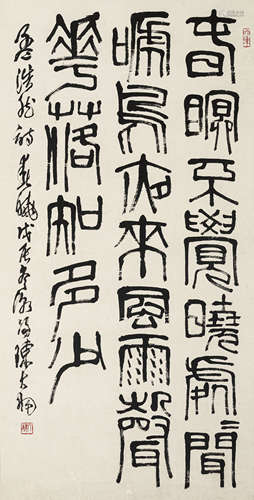 春瞑不覺曉處聞
嗁鳥夜來風雨聲
華落知多少
孟浩然詩春曉戊辰冬陳大羽